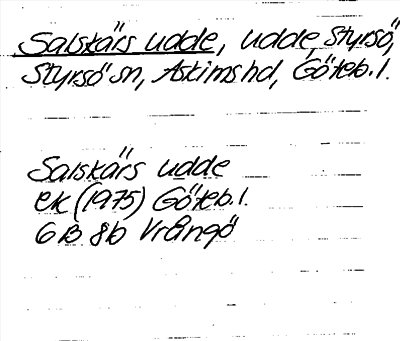 Salskärs udde, udde, Styrsö,
Styrsö sn, Askims hd, Göteb. l.
Salskärs udde
ek (1975) Göteb. l.
6B 8b Vrångö